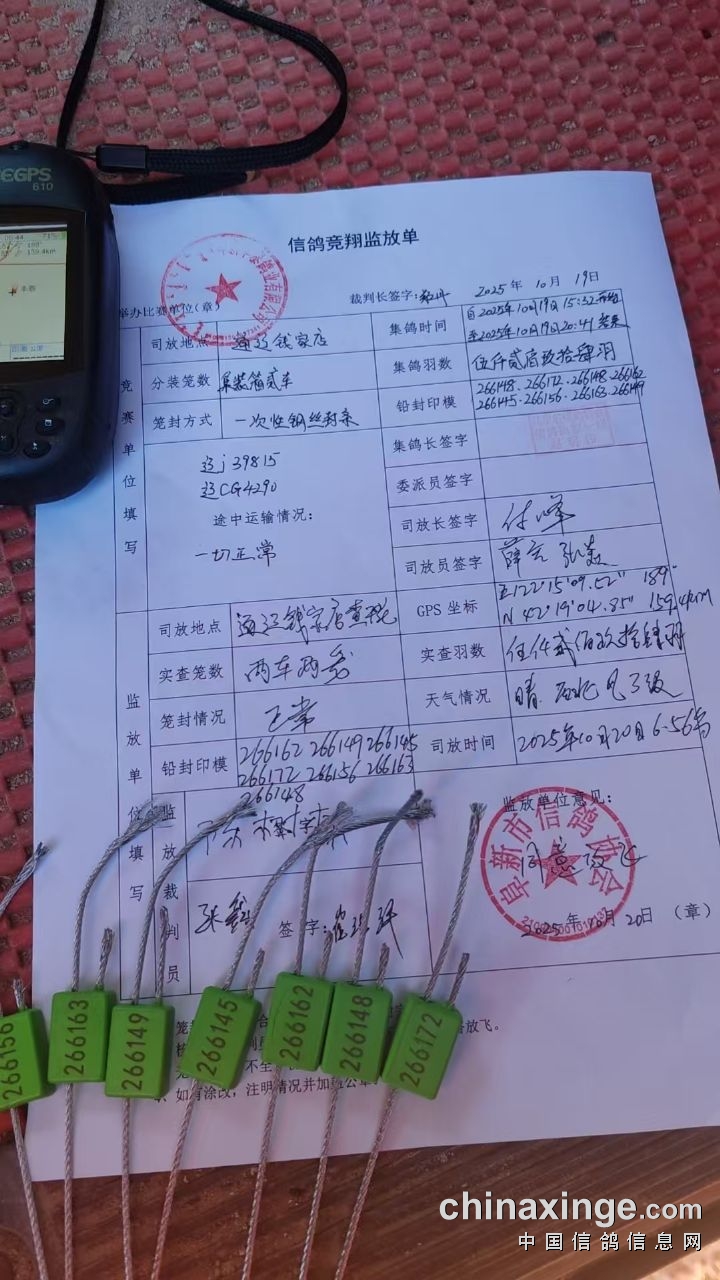 GPS
610
159.4km
信鸽竞翔监放单
举办比赛单位(章)
裁判长签字:
2025年10月19日
竞赛单位填写
司放地点
通辽钱家店
集鸽时间
自2025年10月19日15:32开始
至2025年10月19日20:41结束
分装笼数
集装箱贰车
集鸽羽数
伍仟贰佰玖拾肆羽
笼封方式
一次性钢丝封条
铅封印模
266148.266172.266148.266162
266145.266156.266163.266149
辽J39815
辽CG4290
途中运输情况:
一切正常
集鸽长签字
委派员签字
司放长签字
付峰
司放员签字
监放单位填写
司放地点
通辽钱家店
GPS坐标
E122°15'09.52" 189°
N 42°19'04.85" 159.4km
实查笼数
两车两
实查羽数
伍仟贰佰玖拾肆羽
笼封情况
正常
天气情况
晴 西北风3级
铅封印模
266162 266149 266145
266172 266156 266163
266148
司放时间
2025年10月20日6:56
监放裁判员
签字:
监放单位意见:
同意放飞
阜新市信鸽协会
2025年10月20日 (章)
放飞。
如有涂改,注明情况并加盖公章
266156
266163
266149
266145
266162
266148
266172
chinaxinge.com
中国信鸽信息网